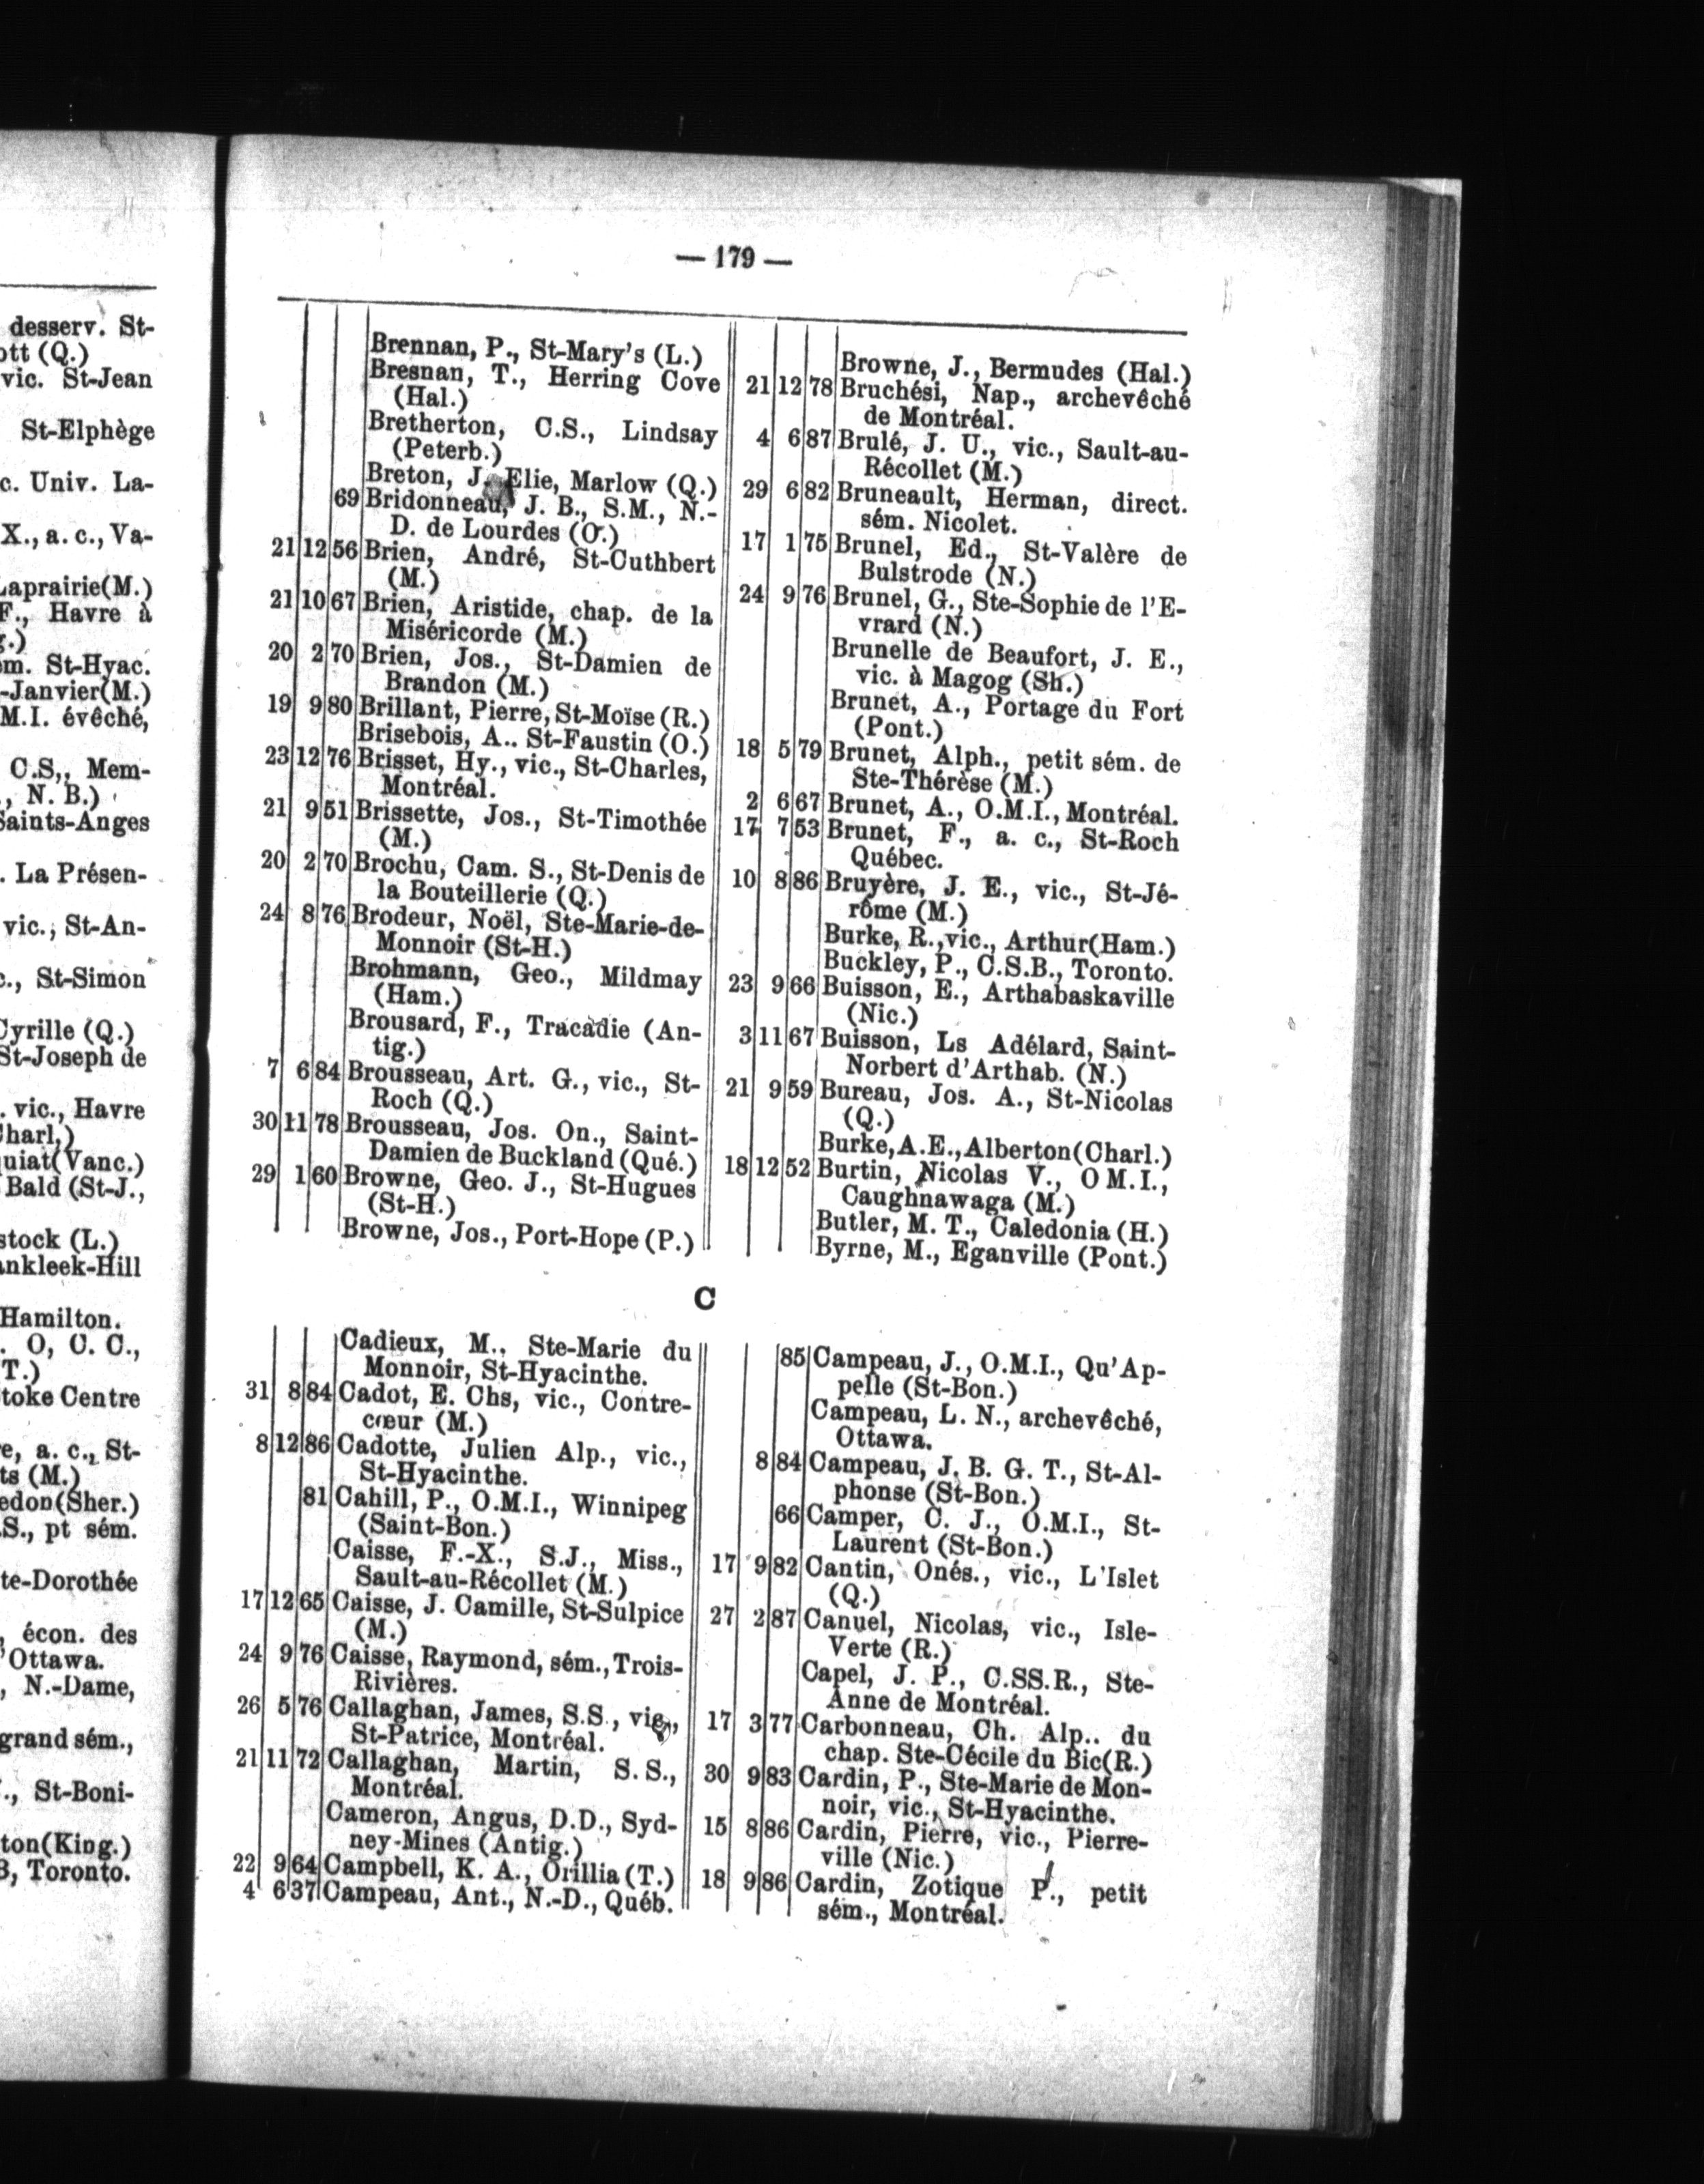 desserv. St-
ott (Q.)
vic. St-Jean
St-Elphège
c. Univ. La-
X., a. c., Va-
Laprairie(M.)
F., Havre à
g.)
em. St-Hyac.
-Janvier(M.)
M.I. évêché,
C.S,, Mem-
, N. B.)
Saints-Anges
. La Présen-
vic., St-An-
c., St-Simon
Cyrille (Q.)
St-Joseph de
. vic., Havre
Charl.)
quiat(Vanc.)
Bald (St-J.,
stock (L.)
ankleek-Hill
Hamilton.
. O, C. C.,
T.)
toke Centre
e, a. c., St-
ts (M.)
edon(Sher.)
.S., pt sém.
te-Dorothée
, écon. des
'Ottawa.
, N.-Dame,
grand sém.,
., St-Boni-
ton(King.)
B, Toronto.
— 179 —
Brennan, P., St-Mary's (L.)
Bresnan, T., Herring Cove
(Hal.)
Bretherton, C.S., Lindsay
(Peterb.)
Breton, J. Elie, Marlow (Q.)
69 Bridonneau, J. B., S.M., N.-
D. de Lourdes (O.)
21 12 56 Brien, André, St-Cuthbert
(M.)
21 10 67 Brien, Aristide, chap. de la
Miséricorde (M.)
20 2 70 Brien, Jos., St-Damien de
Brandon (M.)
19 9 80 Brillant, Pierre, St-Moïse (R.)
Brisebois, A.. St-Faustin (O.)
23 12 76 Brisset, Hy., vic., St-Charles,
Montréal.
21 9 51 Brissette, Jos., St-Timothée
(M.)
20 2 70 Brochu, Cam. S., St-Denis de
la Bouteillerie (Q.)
24 8 76 Brodeur, Noël, Ste-Marie-de-
Monnoir (St-H.)
Brohmann, Geo., Mildmay
(Ham.)
Brousard, F., Tracadie (An-
tig.)
7 6 84 Brousseau, Art. G., vic., St-
Roch (Q.)
30 11 78 Brousseau, Jos. On., Saint-
Damien de Buckland (Qué.)
29 1 60 Browne, Geo. J., St-Hugues
(St-H.)
Browne, Jos., Port-Hope (P.)
Browne, J., Bermudes (Hal.)
21 12 78 Bruchési, Nap., archevêché
de Montréal.
4 6 87 Brulé, J. U., vic., Sault-au-
Récollet (M.)
29 6 82 Bruneault, Herman, direct.
sém. Nicolet.
17 1 75 Brunel, Ed., St-Valère de
Bulstrode (N.)
24 9 76 Brunel, G., Ste-Sophie de l'E-
vrard (N.)
Brunelle de Beaufort, J. E.,
vic. à Magog (Sh.)
Brunet, A., Portage du Fort
(Pont.)
18 5 79 Brunet, Alph., petit sém. de
Ste-Thérèse (M.)
2 6 67 Brunet, A., O.M.I., Montréal.
17 7 53 Brunet, F., a. c., St-Roch
Québec.
10 8 86 Bruyère, J. E., vic., St-Jé-
rôme (M.)
Burke, R., vic., Arthur(Ham.)
Buckley, P., C.S.B., Toronto.
23 9 66 Buisson, E., Arthabaskaville
(Nic.)
3 11 67 Buisson, Ls Adélard, Saint-
Norbert d'Arthab. (N.)
21 9 59 Bureau, Jos. A., St-Nicolas
(Q.)
Burke, A.E., Alberton(Charl.)
18 12 52 Burtin, Nicolas V., O M.I.,
Caughnawaga (M.)
Butler, M. T., Caledonia (H.)
Byrne, M., Eganville (Pont.)
C
Cadieux, M., Ste-Marie du
Monnoir, St-Hyacinthe.
31 8 84 Cadot, E. Chs, vic., Contre-
cœur (M.)
8 12 86 Cadotte, Julien Alp., vic.,
St-Hyacinthe.
81 Cahill, P., O.M.I., Winnipeg
(Saint-Bon.)
Caisse, F.-X., S.J., Miss.,
Sault-au-Récollet (M.)
17 12 65 Caisse, J. Camille, St-Sulpice
(M.)
24 9 76 Caisse, Raymond, sém., Trois-
Rivières.
26 5 76 Callaghan, James, S.S., vic.,
St-Patrice, Montréal.
21 11 72 Callaghan, Martin, S. S.,
Montréal.
Cameron, Angus, D.D., Syd-
ney-Mines (Antig.)
22 9 64 Campbell, K. A., Orillia (T.)
4 6 37 Campeau, Ant., N.-D., Québ.
85 Campeau, J., O.M.I., Qu'Ap-
pelle (St-Bon.)
Campeau, L. N., archevêché,
Ottawa.
8 84 Campeau, J. B. G. T., St-Al-
phonse (St-Bon.)
66 Camper, C. J., O.M.I., St-
Laurent (St-Bon.)
17 9 82 Cantin, Onés., vic., L'Islet
(Q.)
27 2 87 Canuel, Nicolas, vic., Isle-
Verte (R.)
Capel, J. P., C.SS.R., Ste-
Anne de Montréal.
17 3 77 Carbonneau, Ch. Alp.. du
chap. Ste-Cécile du Bic(R.)
30 9 83 Cardin, P., Ste-Marie de Mon-
noir, vic., St-Hyacinthe.
15 8 86 Cardin, Pierre, vic., Pierre-
ville (Nic.)
18 9 86 Cardin, Zotique P., petit
sém., Montréal.